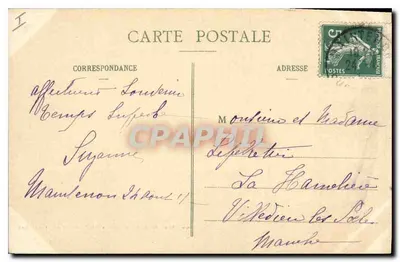 I
CARTE POSTALE
CORRESPONDANCE
ADRESSE
5
POSTES
affectueux Souvenir
Temps Superbe
Suzanne
Maintenon 24 Août
Monsieur et Madame
La Hamelière
Villedieu les Poêles
Manche
CPAPHIL